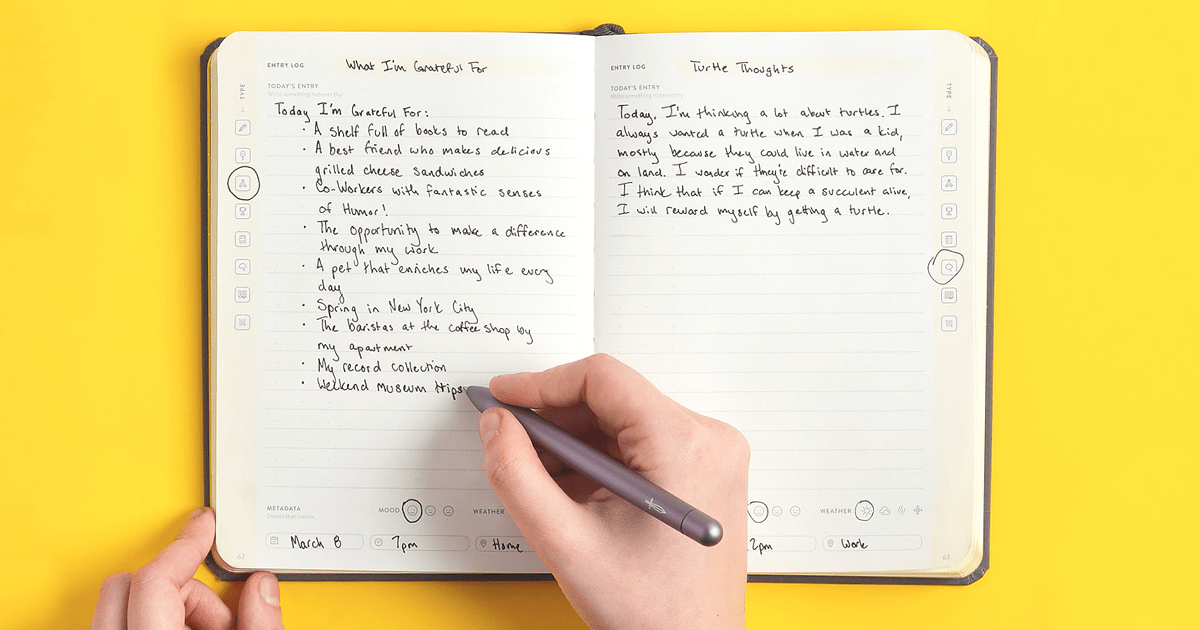 ENTRY LOG What I'm Grateful For
TYPE
TODAY'S ENTRY
Write something noteworthy.
Today I'm Grateful For:
· A shelf full of books to read
· A best friend who makes delicious
grilled cheese sandwiches
· Co-Workers with fantastic senses
of Humor!
· The opportunity to make a difference
through my work
· A pet that enriches my life every
day
· Spring in New York City
· The baristas at the coffee shop by
my apartment
· My record collection
· Weekend Museum trips
METADATA
Details that matter.
MOOD
WEATHER
March 8
7pm
Home
62
ENTRY LOG Turtle Thoughts
TYPE
TODAY'S ENTRY
Write something noteworthy.
Today, I'm thinking a lot about turtles. I
always wanted a turtle when I was a kid,
mostly because they could live in water and
on land. I wonder if they're difficult to care for.
I think that if I can keep a succulent alive,
I will reward myself by getting a turtle.
WEATHER
2pm
Work
63